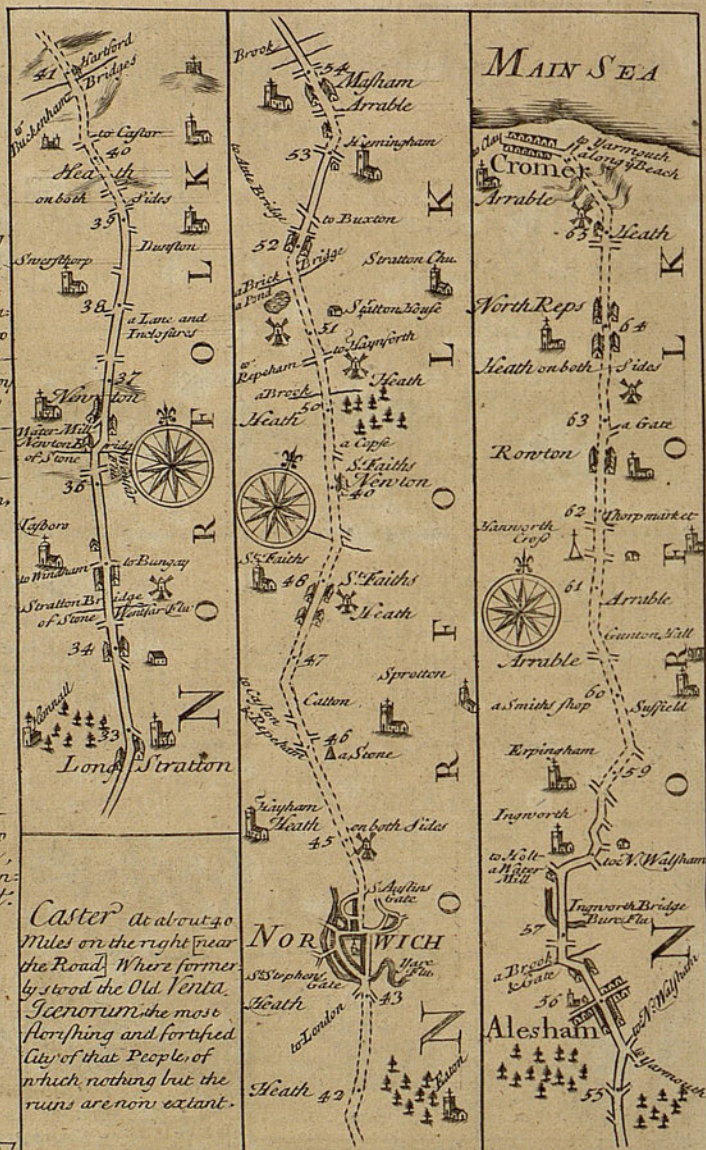 41
Hartford
Bridges
to
Buckenham
to Castor
40
Heath
on both Sides
39
Dunston
38
a Lane and
Inclosures
37
Newton
Water Mill
Newton Bridg
of Stone
36
to Windham
to Bungay
Stratton Bridge
of Stone
34
33
Long Stratton
NORFOLK
Caster at about 40
Miles on the right [near
the Road] Where former
ly stood the Old Venta
Icenorum the most
florishing and fortified
City of that People, of
which nothing but the
ruins are now extant.
Brook
54
Masham
Arrable
53
Hemingham
to Buxton
52
Bridge
a Brick
a Pond
Stratton Chu.
Stratton House
51
to Haynforth
to
Repeham
Heath
a Brook
50
Heath
a Copse
St. Faiths
Newton
40
St. Faiths
48
St. Faiths
Heath
47
Sprotton
Catton
46
a Stone
Hayham
Heath on both Sides
45
St Austins
Gate
NORWICH
St Stephens
Gate
Yare
Flu.
43
Heath
to London
Heath
42
Eston
NORFOLK
MAIN SEA
to Clay
to Yarmouth
along ye Beach
Cromer
Arrable
65
Heath
North Reps
64
Heath on both Sides
63
a Gate
Rowton
62
Thorpmarket
Hanworth
Cross
61
Arrable
Gunton Hall
Arrable
60
a Smiths shop
Suffield
59
Erpingham
Ingworth
to Holt
a Water
Mill
to N. Walsham
Ingworth Bridge
Bure Flu
57
a Brook
& Gate
56
Alesham
to N. Walsham
to Yarmouth
55
NORFOLK